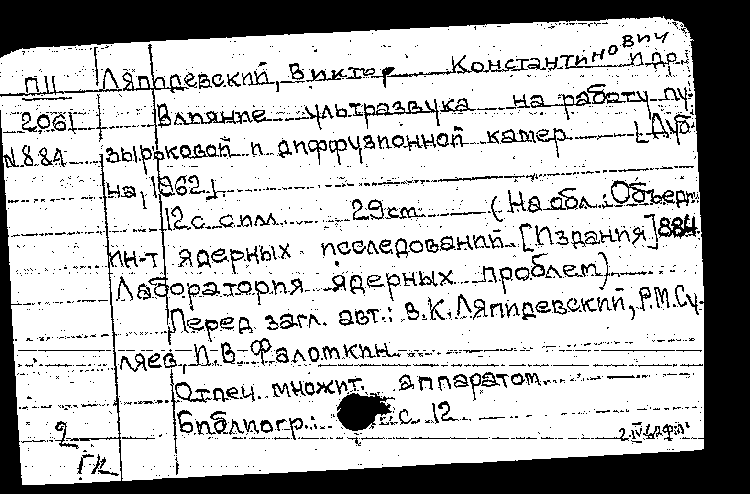 П11 Ляпидевский, Виктор Константинович и др.
2061 Влияние ультразвука на работу пу-
N884 зырьковой и диффузионной камер [Дуб-
на, 1962]
12 с с илл. 29 см (На обл.: Объедин.
ин-т ядерных исследований. [Издания] 884
Лаборатория ядерных проблем)
Перед загл. авт.: В.К. Ляпидевский, Р.М. Су-
ляев, И.В. Фаломкин.
Отпеч. множит. аппаратом.
Библиогр.: с. 12
2
ГК